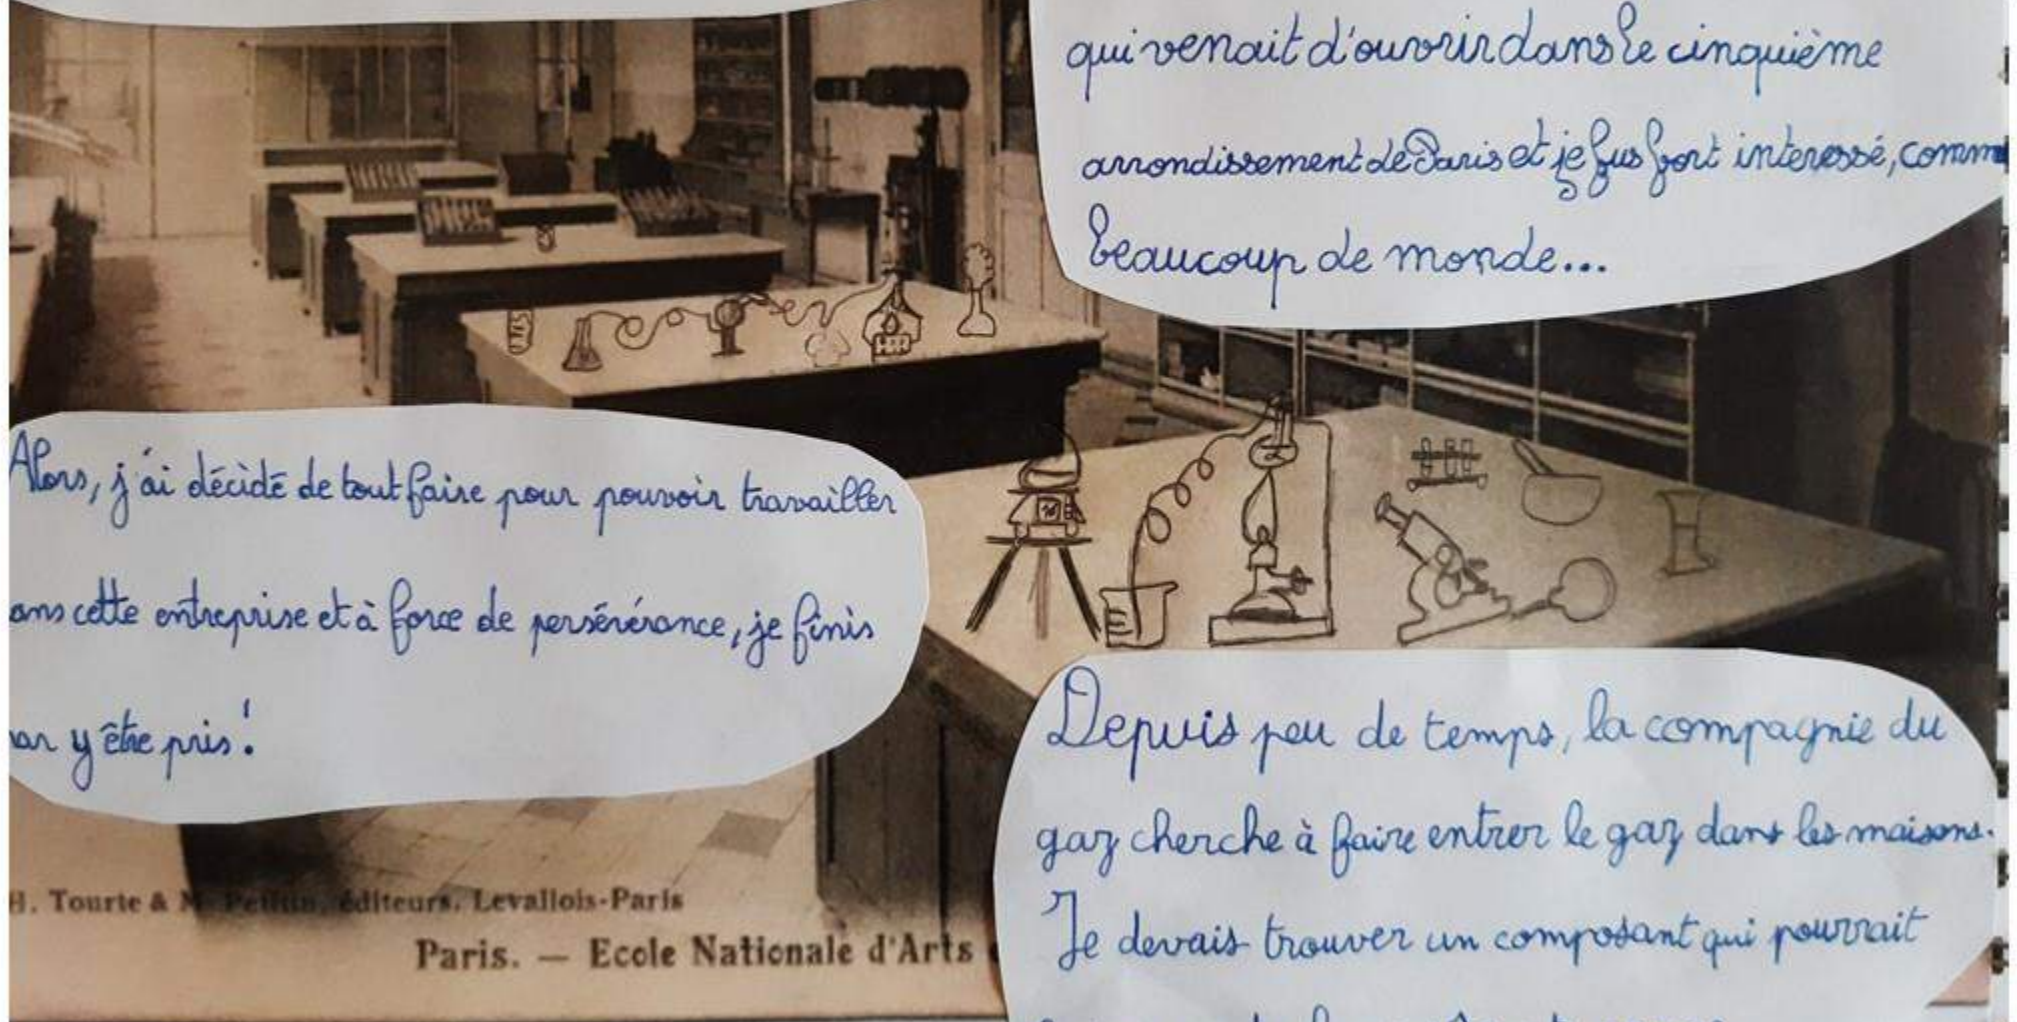 qui venait d'ouvrir dans le cinquième
arrondissement de Paris et je fus fort interessé, comm
beaucoup de monde...
Alors, j'ai décidé de tout faire pour pouvoir travailler
ans cette entreprise et à force de persévérance, je finis
ar y être pris!
Depuis peu de temps, la compagnie du
gaz cherche à faire entrer le gaz dans les maisons.
Je devais trouver un composant qui pourrait
H. Tourte & M. Petitin, éditeurs, Levallois-Paris
Paris. — Ecole Nationale d'Arts